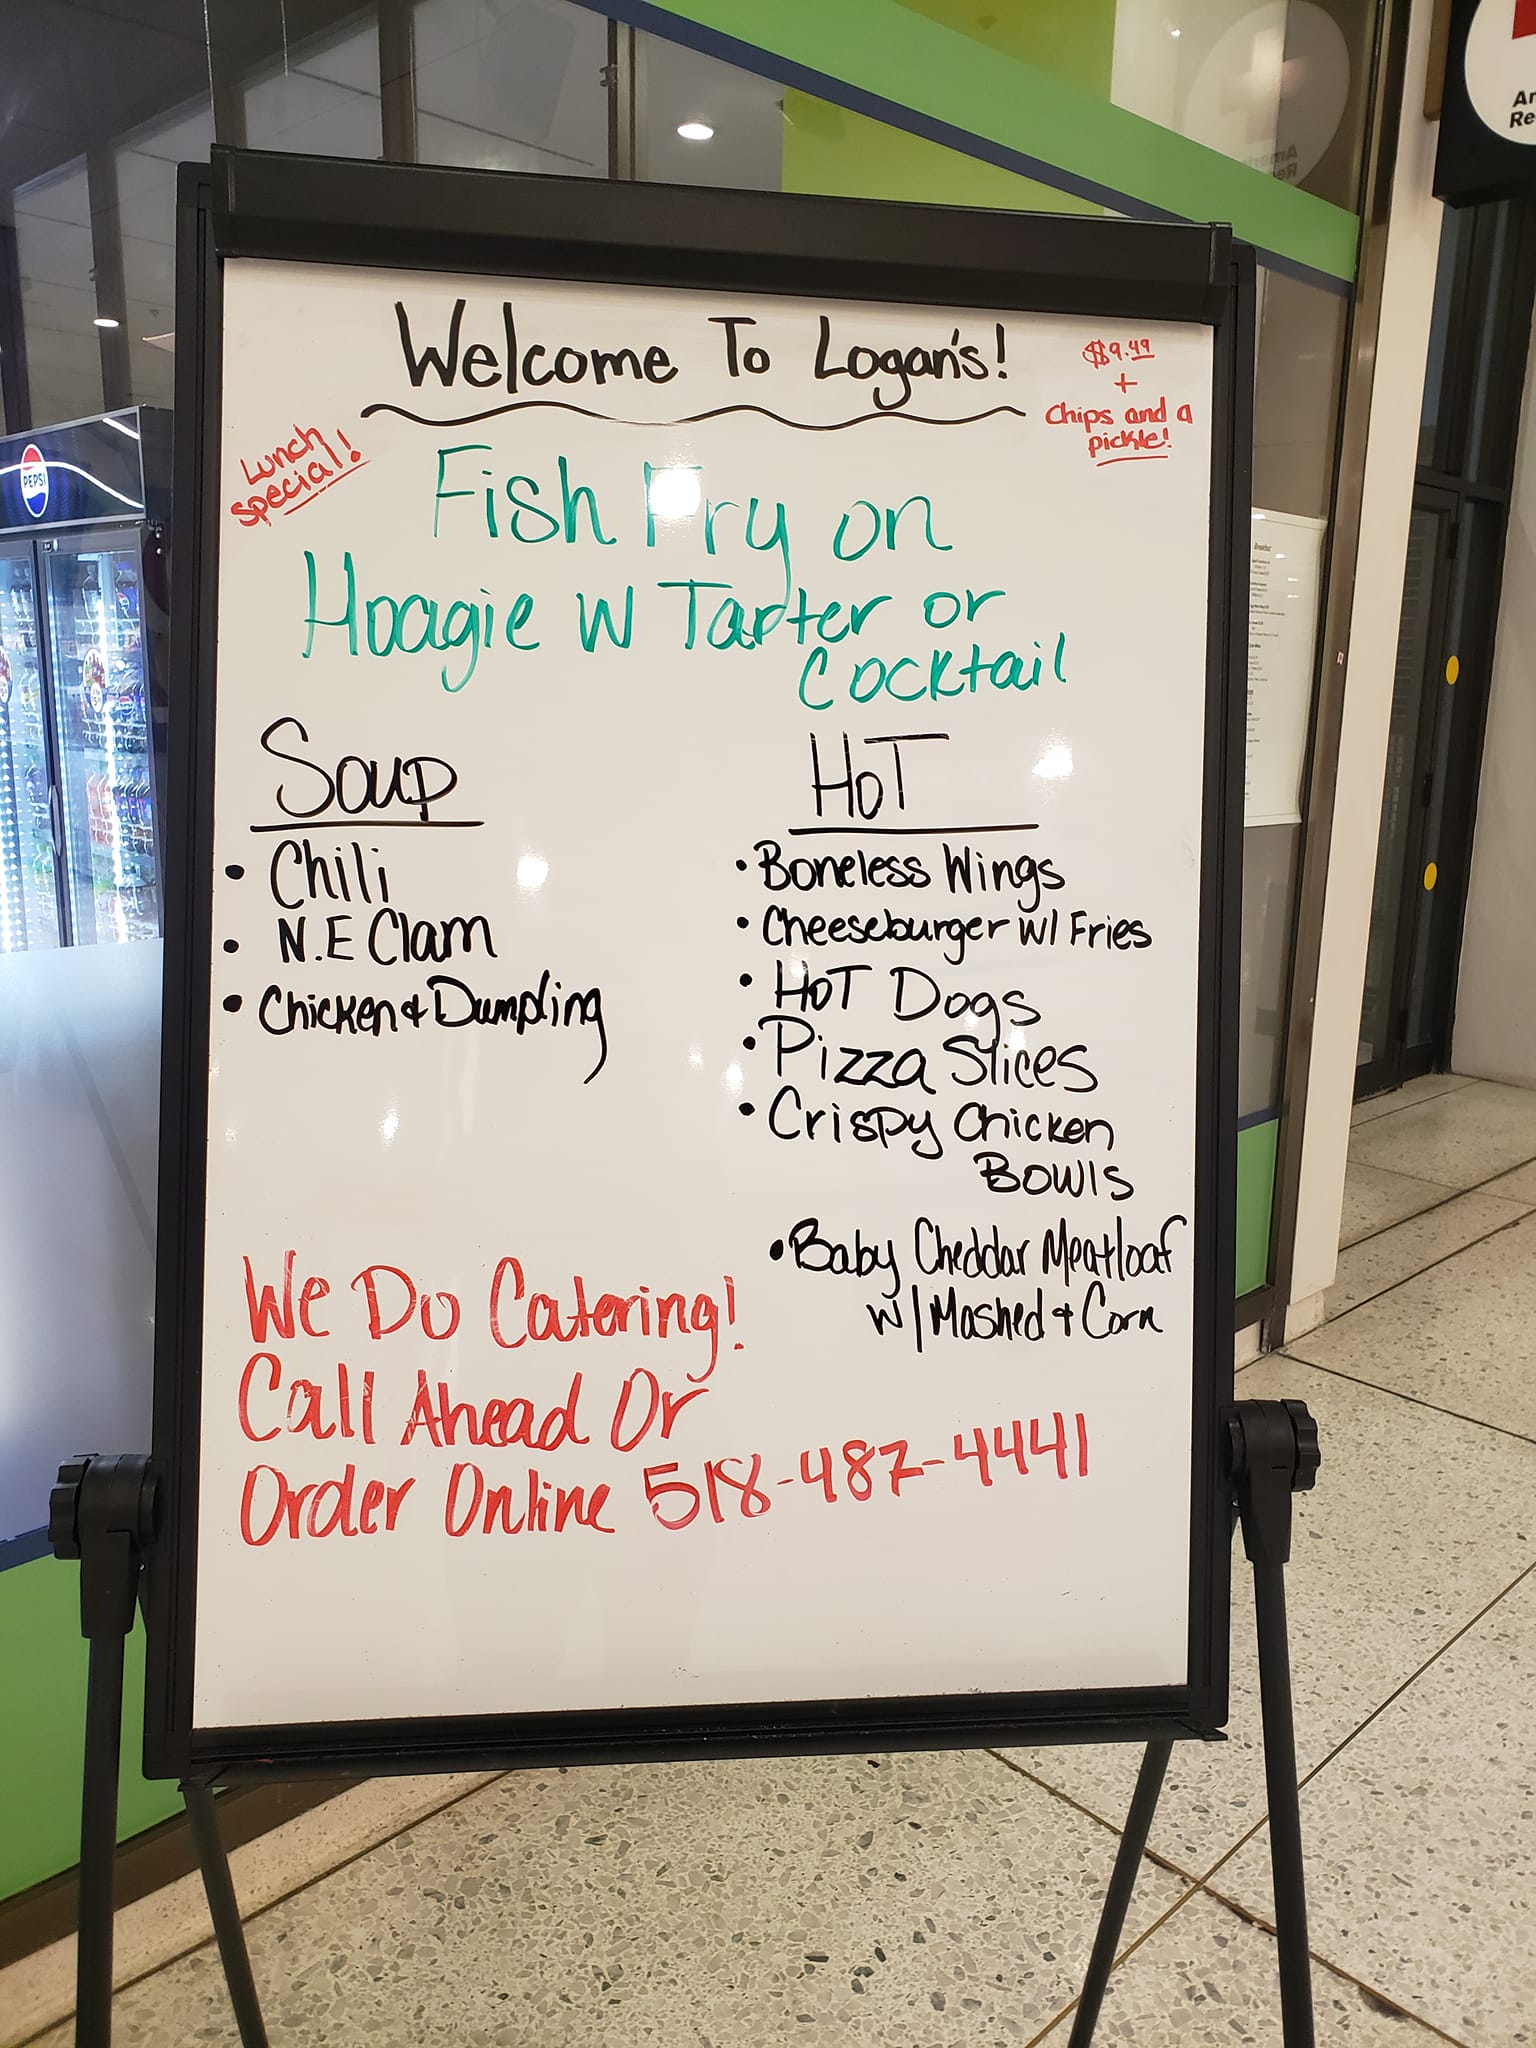 Welcome To Logan's!
$9.49
+
Chips and a
pickle!
Lunch
special!
Fish Fry on
Hoagie W Tarter or
Cocktail
Soup
• Chili
• N.E Clam
• Chicken & Dumpling
HOT
• Boneless Wings
• Cheeseburger W/ Fries
• HOT Dogs
• Pizza Slices
• Crispy Chicken
Bowls
• Baby Cheddar Meatloaf
w/ Mashed & Corn
We Do Catering!
Call Ahead Or
Order Online 518-487-4441
PEPSI